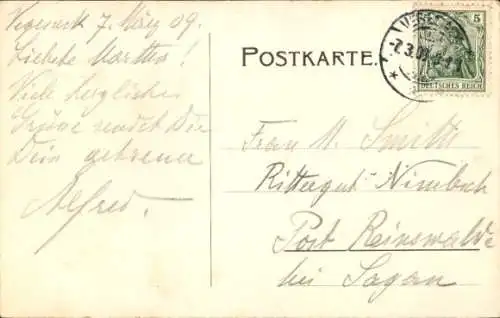 Vegesack 7. März 09.
Liebste Martha!
Viele herzliche
Grüße sendet Dir
Dein getreuer
Alfred.
POSTKARTE.
5
DEUTSCHES REICH
-7.3.09.
Frau M. Smith
Rittergut Nimbsch
Post Reinswalde
bei Sagan